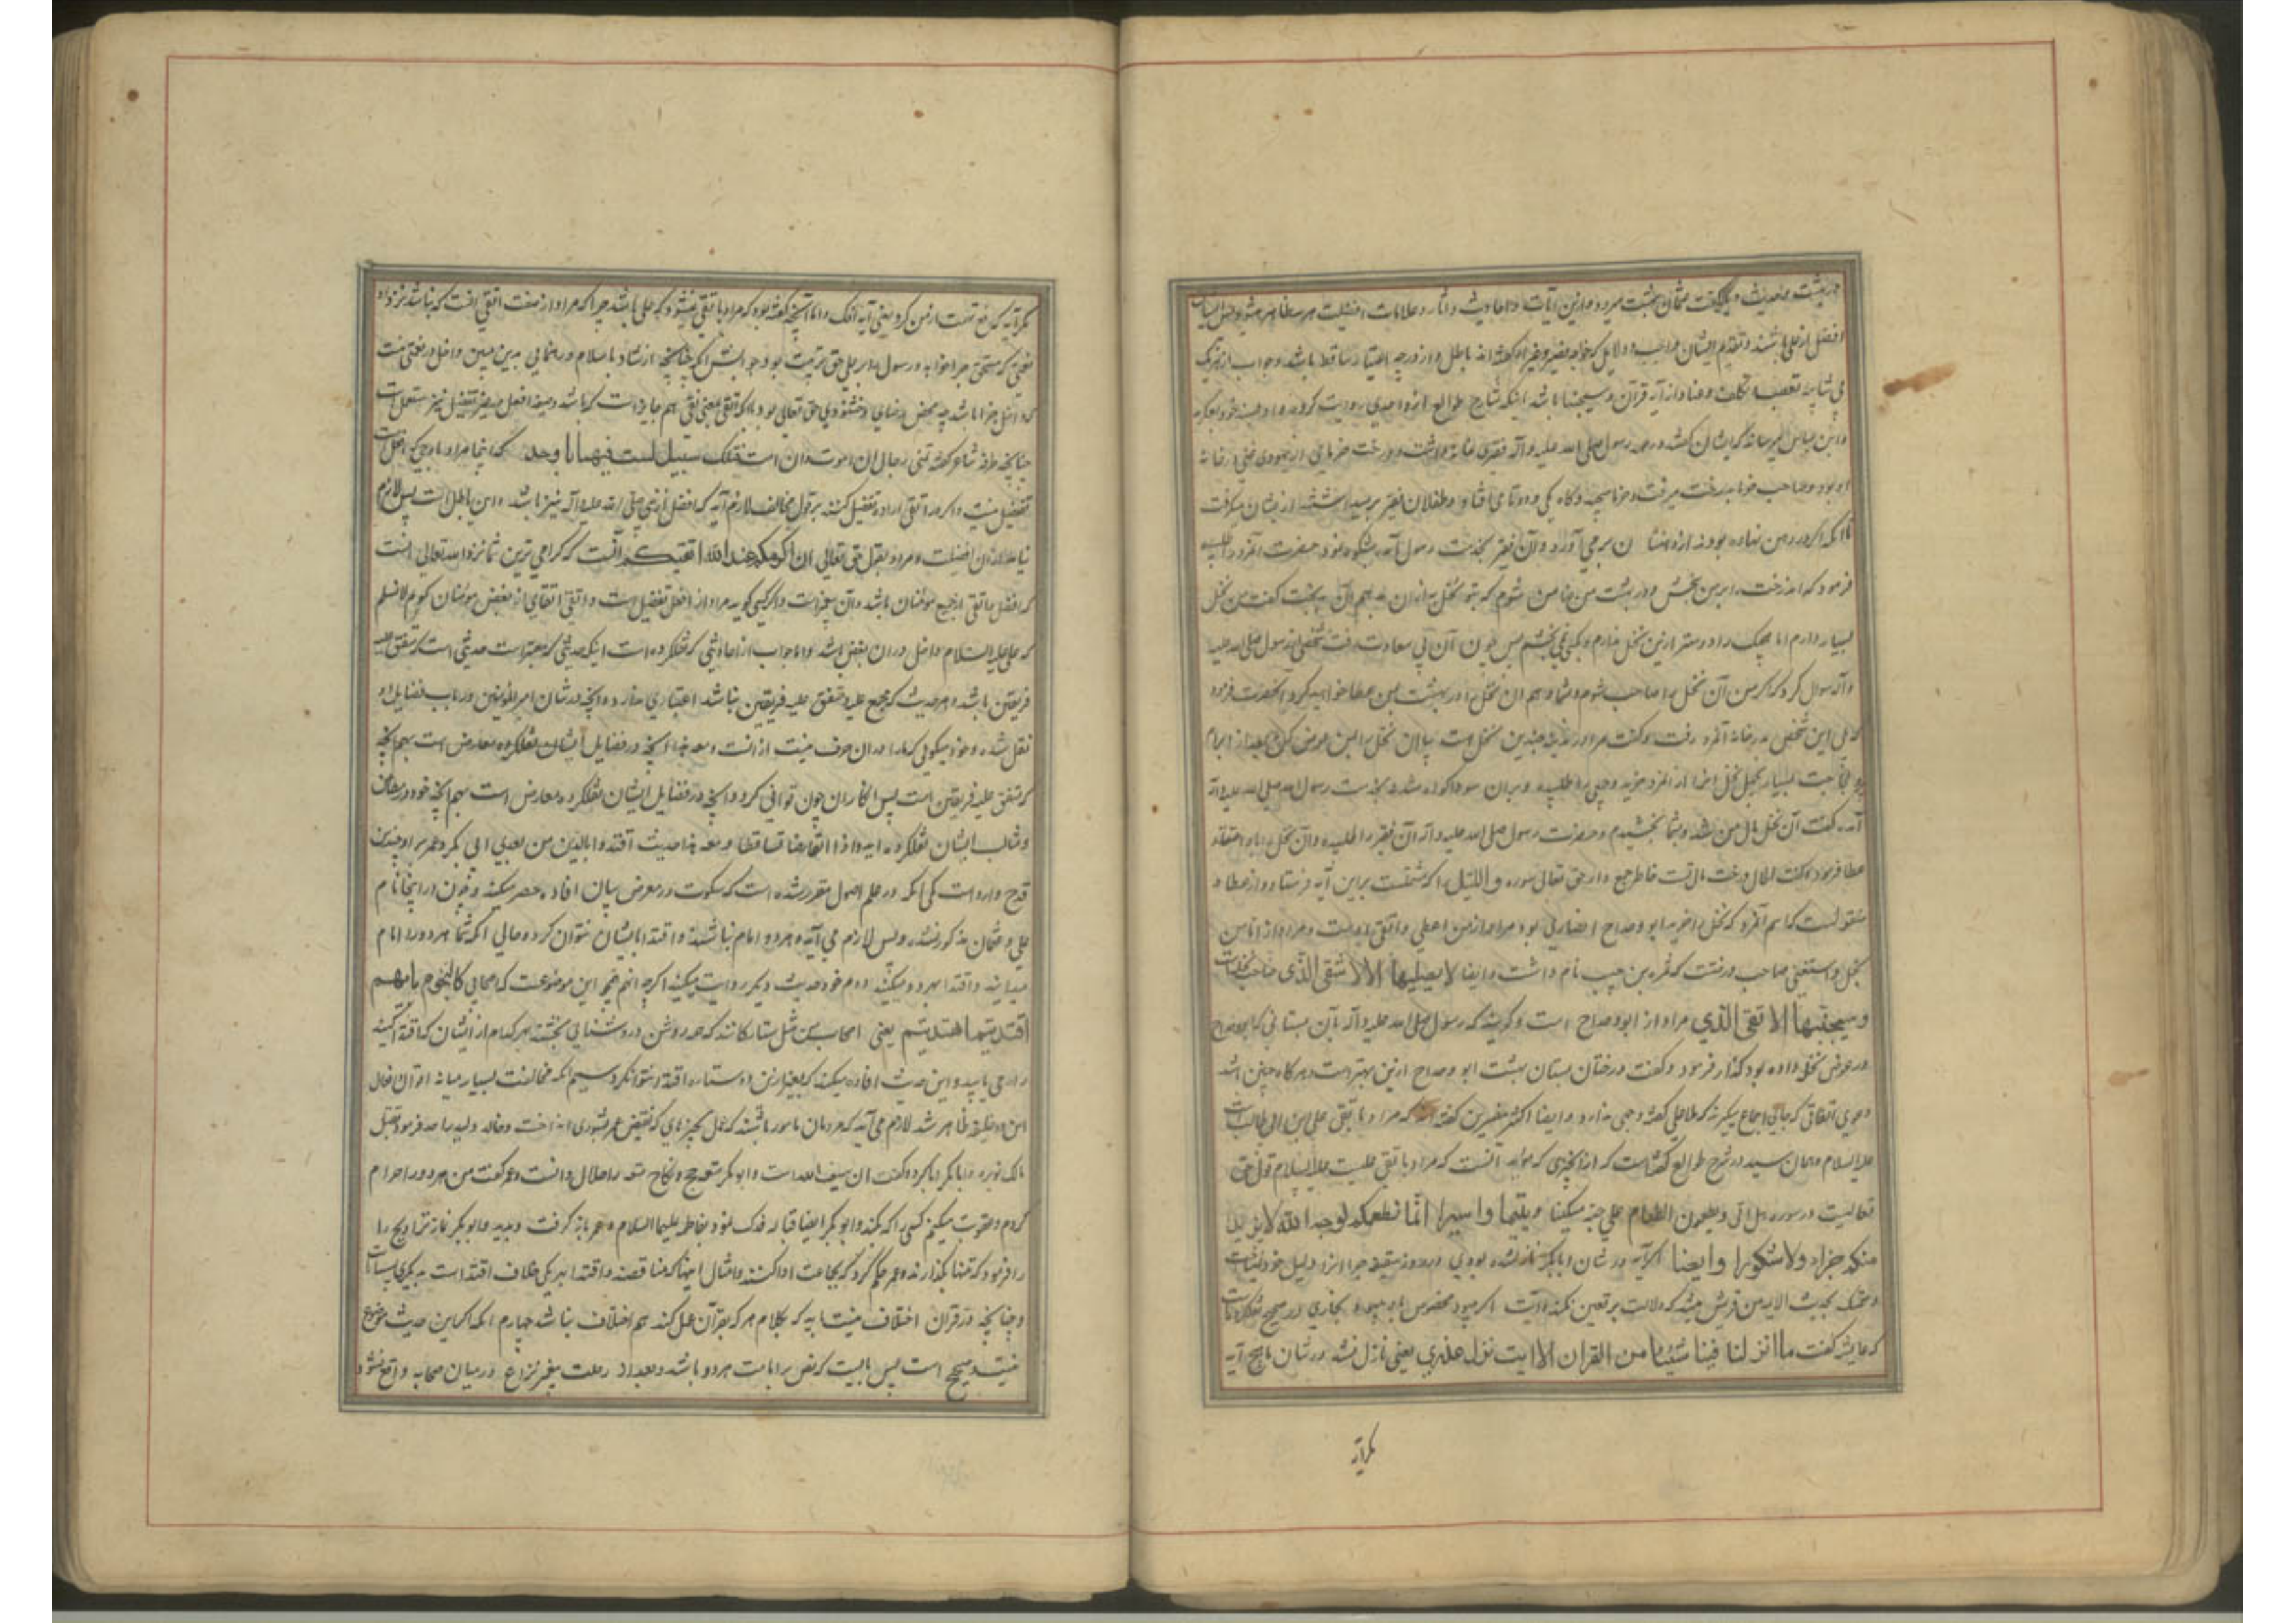 افضل از علی باشند و تقدیم ایشان واجب و دلایل که خواجه نصیر و غیر او گفته‌اند باطل و از درجه اعتبار ساقط باشد و جواب از هر یک
بی شایبه تعصب و تکلف و عناد از آیه قرآن و سیجنبها باشد اینکه شارح طوالع از واحدی روایت کرده
و ابن عباس که ایشان گفته در عهد رسول صلی الله علیه و آله فقری خانه داشت و درخت خرمایی از
او بود و صاحب خرما بدرخت میرفت و خرما میچید و گاه یکی و دو تا می افتاد و طفلان فقیر بر میداشتند از یشان میگرفت
تا آنکه اگر در دهن نهاده بودند از دهنشان بر می آورد و آن فقیر بخدمت رسول آمد و شکوه نمود حضرت آنمرد را طلبیده
فرمود که آن درخت را بمن بخش و در بهشت من ضامن شوم که بتو نخلی به از ان بدهم گفت من نخل
بسیار دارم اما هیچیک را دوستر ازین نخل ندارم و نمی بخشم پس چون آن بی سعادت رفت شخصی از رسول صلی الله علیه
و آله سوال کرد که اگر من آن نخل را صاحب شوم و بشما دهم ان نخل را در بهشت بمن عطا خواهید کرد آنحضرت فرمود
بلی این شخص بدر خانه آنمرد رفت و گفت مرا در مدینه چندین نخل است بیا ان نخل را بمن عوض کن و بعد از ابرام
و لجاجت بسیار بچهل نخل انرا از آنمرد خرید و بخدمت رسول الله صلی الله علیه و آله
آمد و گفت آن نخل مال من شد و بشما بخشیدم و حضرت رسول صلی الله علیه و آله آن فقیر را طلبیده و آن نخل را باو
عطا فرمود و گفت الحال درخت مال تست خاطر جمع دار حق تعالی سوره و اللیل را که مشتملست براین آیه فرستاد و از عطا
منقولست که اسم آنمرد که نخل را خرید ابو دحداح انصاری بود و مراد از من اعطی و اتقی اوست و مراد از اما من
بخل و استغنی صاحب درختست که ثمره بن جیب نام داشت و ایضا لا یصلیها الا الاشقی الذی صاحب نخلست
و سیجنبها الاتقی الذی مراد از ابو دحداح است و گویند که رسول صلی الله علیه و آله بآن بستانی که ابودحداح
در عوض نخل داده بود گذار فرمود و گفت درختان بستان بهشت ابو دحداح ازین بهتر است و هر گاه چنین باشد
دعوی اتفاقی که بجای اجماع میگیرند که ملا علی گفته وجهی ندارد و ایضا اکثر مفسرین گفته اند که مراد باتقی علی ابن ابی طالب است
علیه السلام و همان سید در شرح طوالع گفته است که از آن چیزی که مؤید آنست که مراد باتقی علیست علیه السلام قول حق
تعالیست در سوره هل اتی و یطعمون الطعام علی حبه مسکینا و یتیما و اسیرا انما نطعمکم لوجه الله لا نرید
منکم جزاء و لا شکورا و ایضا اگر آیه در شان ابابکر نازل شده بودی در روز سقیفه چرا انرا دلیل خود نساخت
و تمسک بحدیث الایمه من قریش میشد که دلالت بر تعین نکند
که عایشه گفت ما انزل لنا فینا شیئا من القران الا ایت نزل عذری یعنی نازل نشد در شان ما هیچ آیه
مگر آیه
مگر آیه که رفع تهمت از من کرد یعنی آیه افک و اما آنچه گفته بود که مراد باتقی نمیشود که علی باشد چرا که مراد از صفت اتقی آنست که نباشد نزد او
نعمتی که مستحق جزا بود و رسول را بر علی حق تربیت بود
چنانچه طرفه شاعر گفته تمنی رجال ان اموت و ان امت فتلک سبیل لست فیها باوحد که اینجا مراد
تفضیل نیست و اگر در اتقی اراده تفضیل کنند بر قول مخالف لازم آید که افضل از نبی صلی الله علیه و آله نیز باشد و این باطل است پس لازم
نیاید از ان افضلیت و مراد بقول حق تعالی ان اکرمکم عند الله اتقیکم آنست که گرامی ترین شما نزد الله تعالی آنست
که افضل و اتقی از جمیع مؤمنان باشد و اگر کسی گوید مراد از افعل تفضیل است و اتقی اتقای از بعض مؤمنان گویم لا نسلم
که علی علیه السلام داخل در ان بعض باشد و اما جواب از احادیثی که نقلکرده است اینکه حدیثی که معتبر است حدیثی است که متفق علیه
فریقین باشد و هر حدیث که مجمع علیه و متفق علیه فریقین نباشد اعتباری ندارد و آنچه در شان امیر المؤمنین و در باب فضایل او
نقل شده و خود میگویی که ما را در ان حرف نیست از انست و معه هذا آنچه در فضایل ایشان نقلکرده معارض است بهم آنچه
که متفق علیه فریقین است پس انکار ان چون توانی کرد و آنچه در فضایل ایشان نقلکرده معارض است بهم آنچه خود در مطاعن
و مثالب ایشان نقلکرده اید و اذا تعارضا تساقطا و معه هذا حدیث اقتدوا بالذین من بعدی ابی بکر و عمر بر او چندین
قدح وارد است یکی آنکه در علم اصول مقرر شده است که سکوت در معرض بیان افاده حصر میکند و چون در اینجا نام
علی و عثمان مذکور نشده پس لازم می آید که هر دو امام نباشند و اقتدا بایشان نتوان کرد و حالی آنکه شما هر دو را امام
میدانید و اقتدا بهر دو میکنید دوم خود حدیث دیگر روایت میکنید اگر چه آنهم موضوعست که اصحابی کالنجوم بایهم
اقتدیتم اهتدیتم یعنی اصحاب من مثل ستارگانند که در روشنایی بهر کدام از ایشان که اقتدا کنید
راه می یابید و این حدیث افاده میکند که بغیر ازین دو ستاره اقتدا میتوان کرد سیم آنکه مخالفت بسیار میانه افعال
این دو خلیفه ظاهر شد لازم می آید که مردمان مامور باشند که عمل بچیزهای که نقیض و خالد ولید بقتل
مالک نویره و ابابکر ابا کرد و گفت ان سیف الله است و ابو بکر متعه حج و نکاح متعه را حلال دانست و عمر گفت من هر دو را حرام
کردم و عقوبت میکنم کسی را که بکند و ابو بکر ایضا قباله فدک نمود بفاطمه علیها السلام و عمر باز گرفت و ابو بکر نماز تراویح را
فرمود که تنها بگذارند و عمر حکم کرد که بجماعت ادا کنند و امثال اینها که متناقضند و اقتدا بهر یکی خلاف اقتدا است بدیگری
و چنانچه در قران اختلاف نیست باید که بکلام هر که بقرآن عمل کند هم اختلاف نباشد چهارم آنکه اگر این حدیث موضوع
نیست و صحیح است پس بایست که نص بر امامت هر دو باشد و بعد از رحلت پیغمبر نزاع در میان صحابه واقع نشود